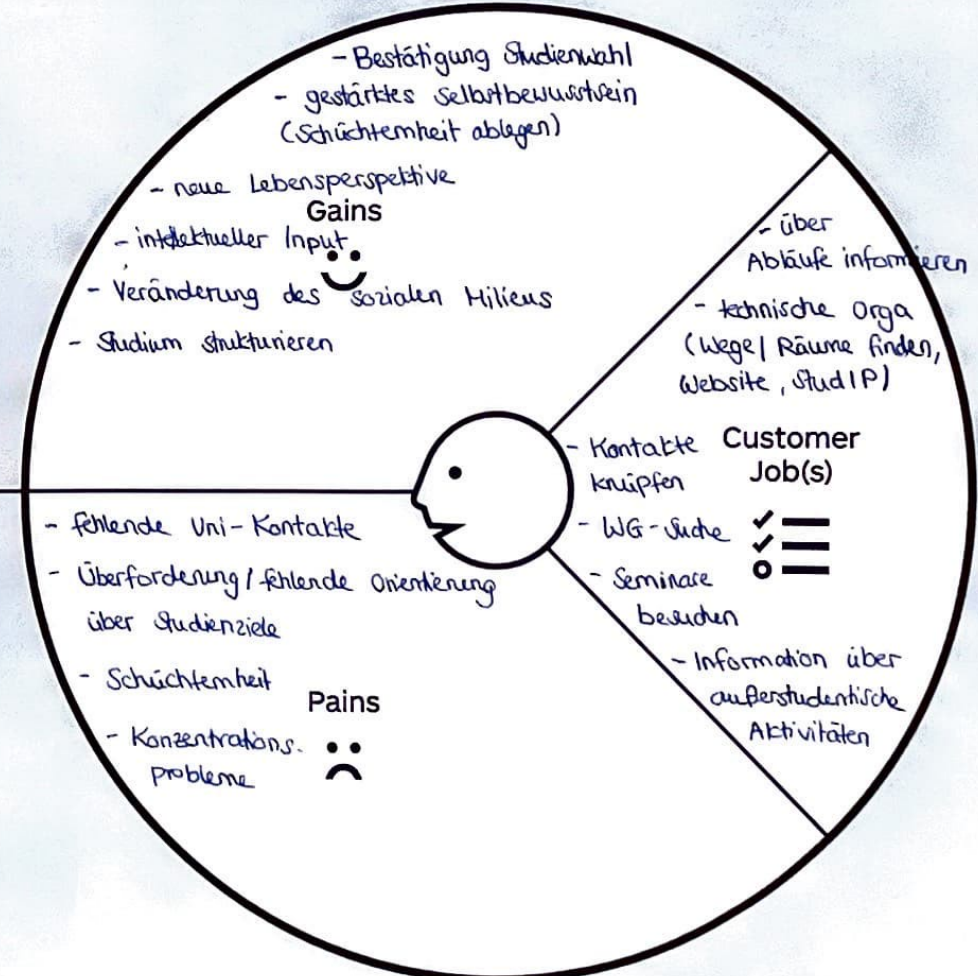 - Bestätigung Studienwahl
- gestärktes Selbstbewusstsein
(Schüchternheit ablegen)
- neue Lebensperspektive
Gains
- intellektueller Input
- Veränderung des sozialen Milieus
- Studium strukturieren
- über
Abläufe informieren
- technische Orga
(Wege/Räume finden,
Website, StudIP)
- Kontakte
knüpfen
Customer
Job(s)
- WG-Suche
- Seminare
besuchen
- Information über
außerstudentische
Aktivitäten
- fehlende Uni-Kontakte
- Überforderung/fehlende Orientierung
über Studienziele
- Schüchternheit
Pains
- Konzentrations-
probleme